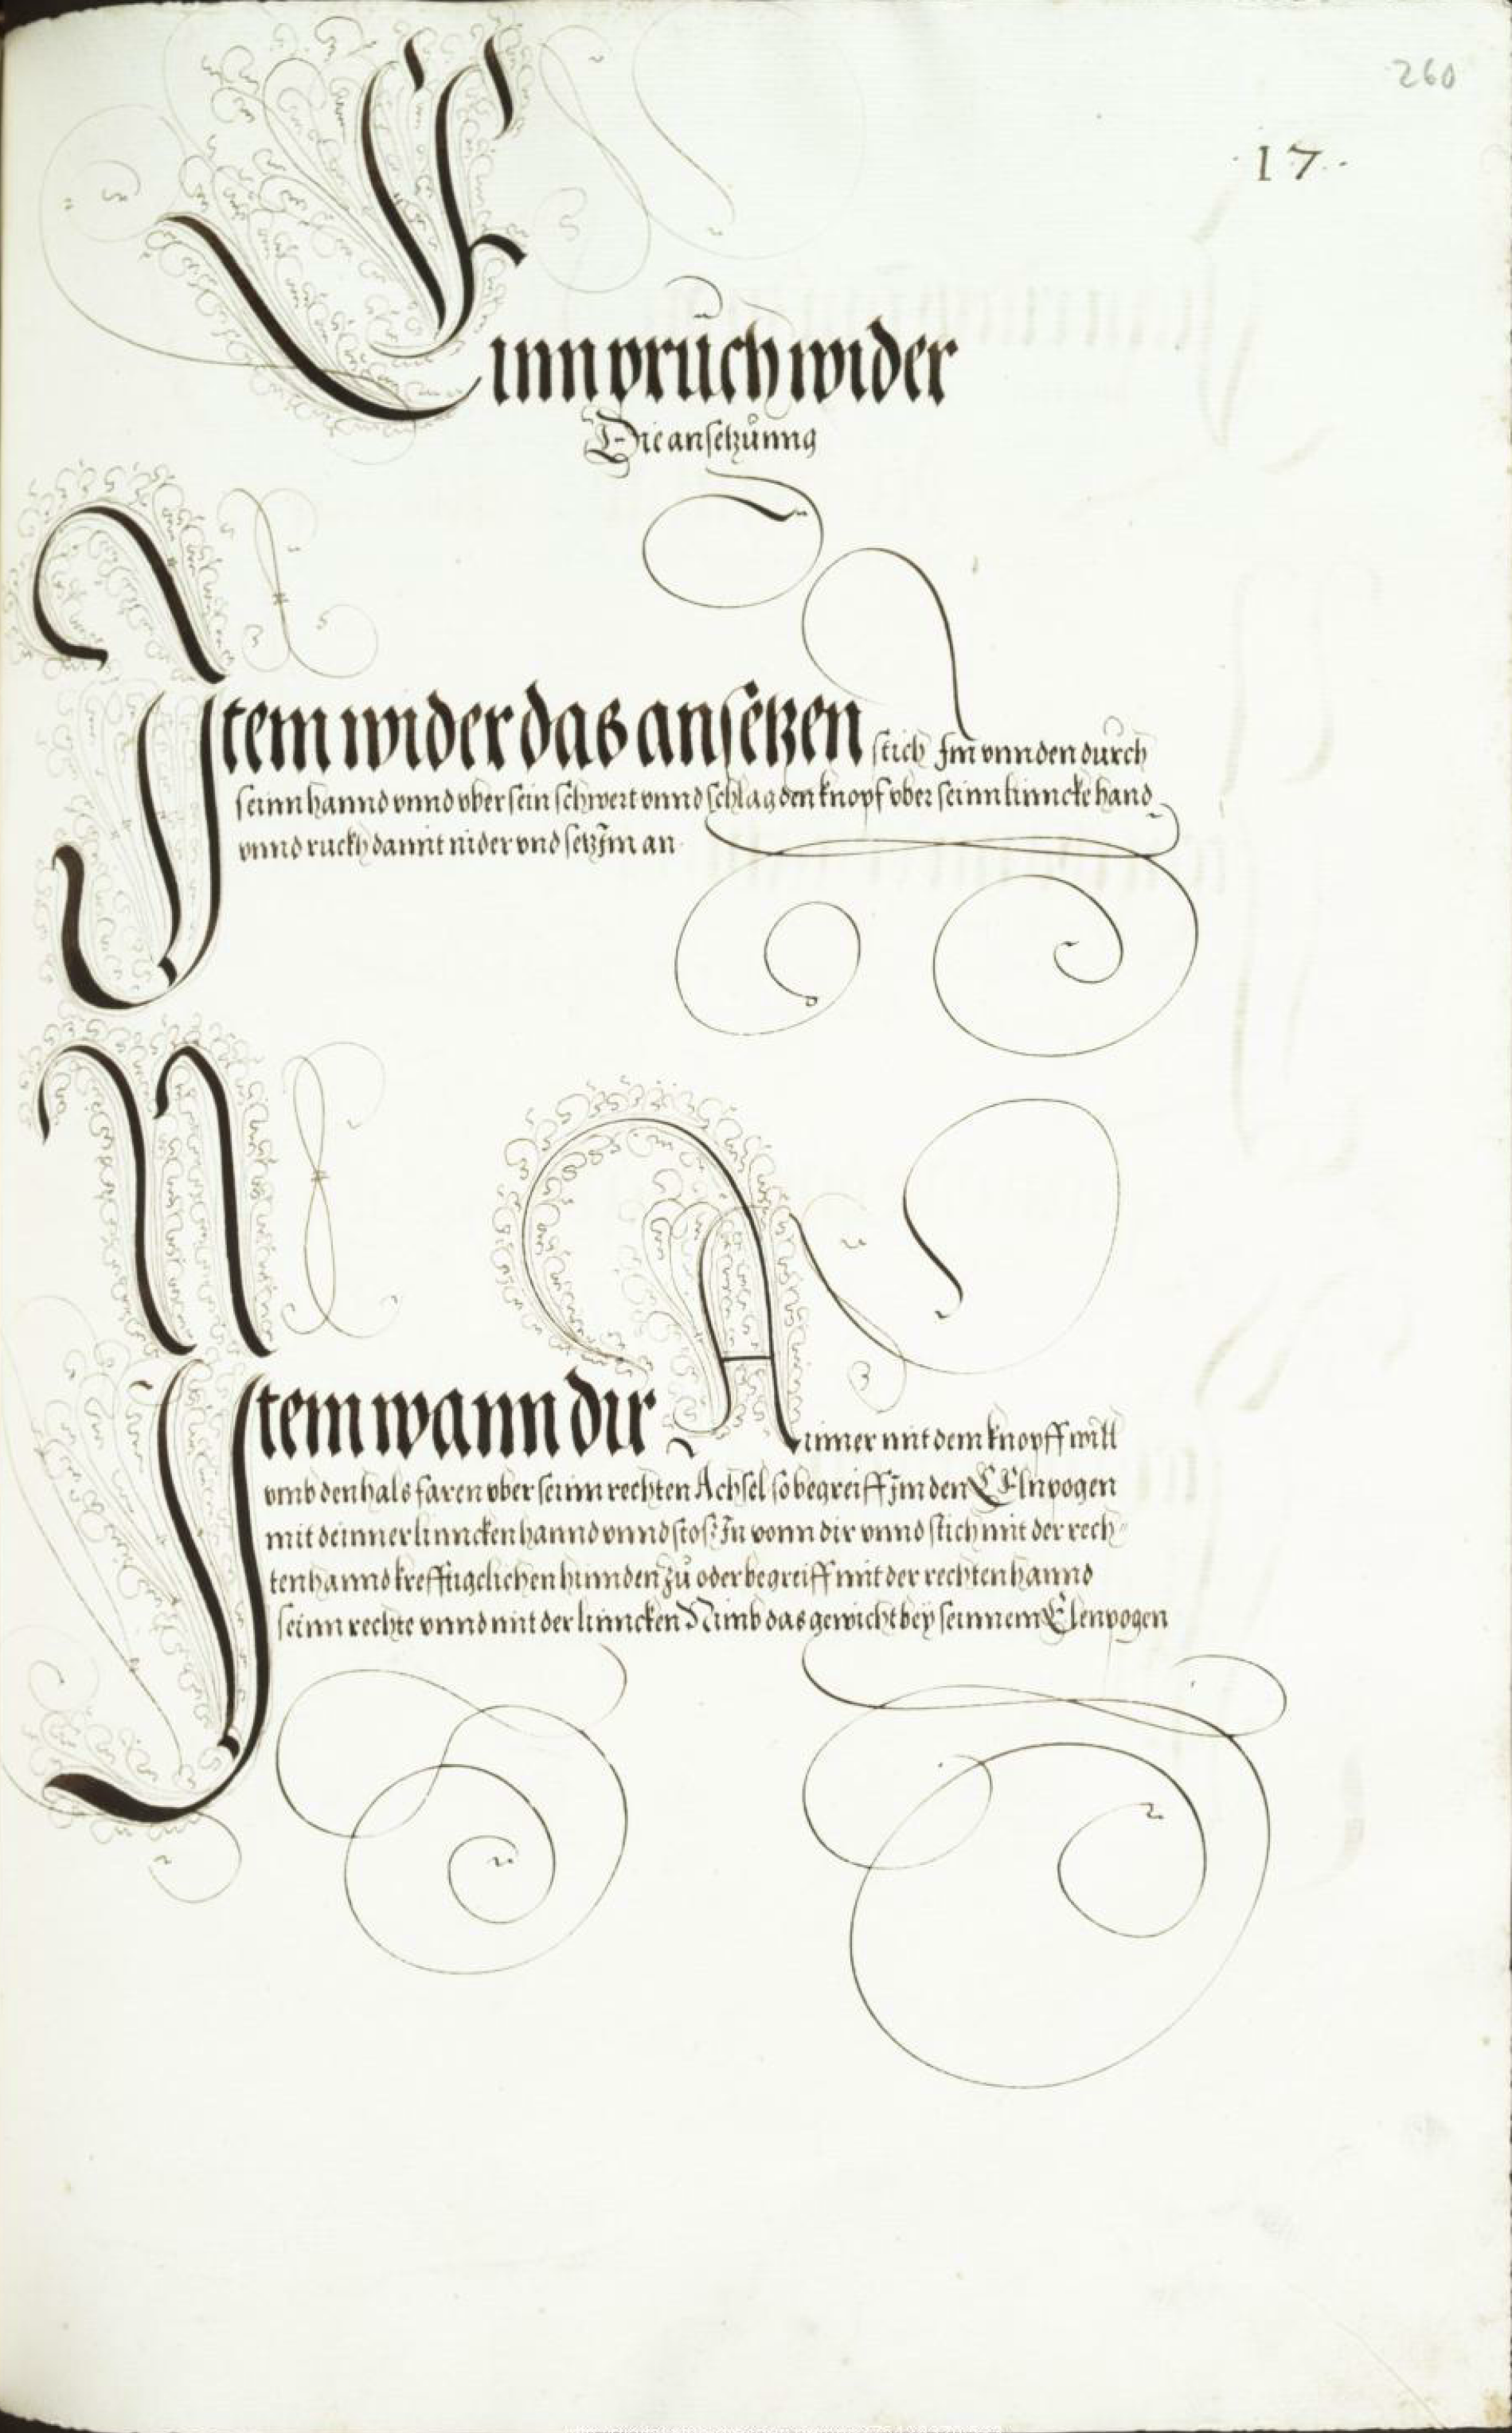 260
·17·
Einnpruch wider
Die ansetzŭnng
Item wider das ansetzen stich Im vnnden dŭrch
seinn hannd vnnd vber sein schwert vnnd schlag den knopf vber seinn linncke hand
vnnd ruckh damit nider vnd setz Im an
N
Item wann dir Ainner mit dem knopff will
vmb den hals faren vber seinn rechten Achsel so begreiff Im den Elnpogen
mit deinner linncken hannd vnnd stos In vonn dir vnnd stich mit der rech-
ten hannd kreffttigclichen hinnden Zŭ oder begreiff mit der rechten hannd
seinn rechte vnnd mit der linncken Nimb das gewicht beÿ seinnem Elenpogen